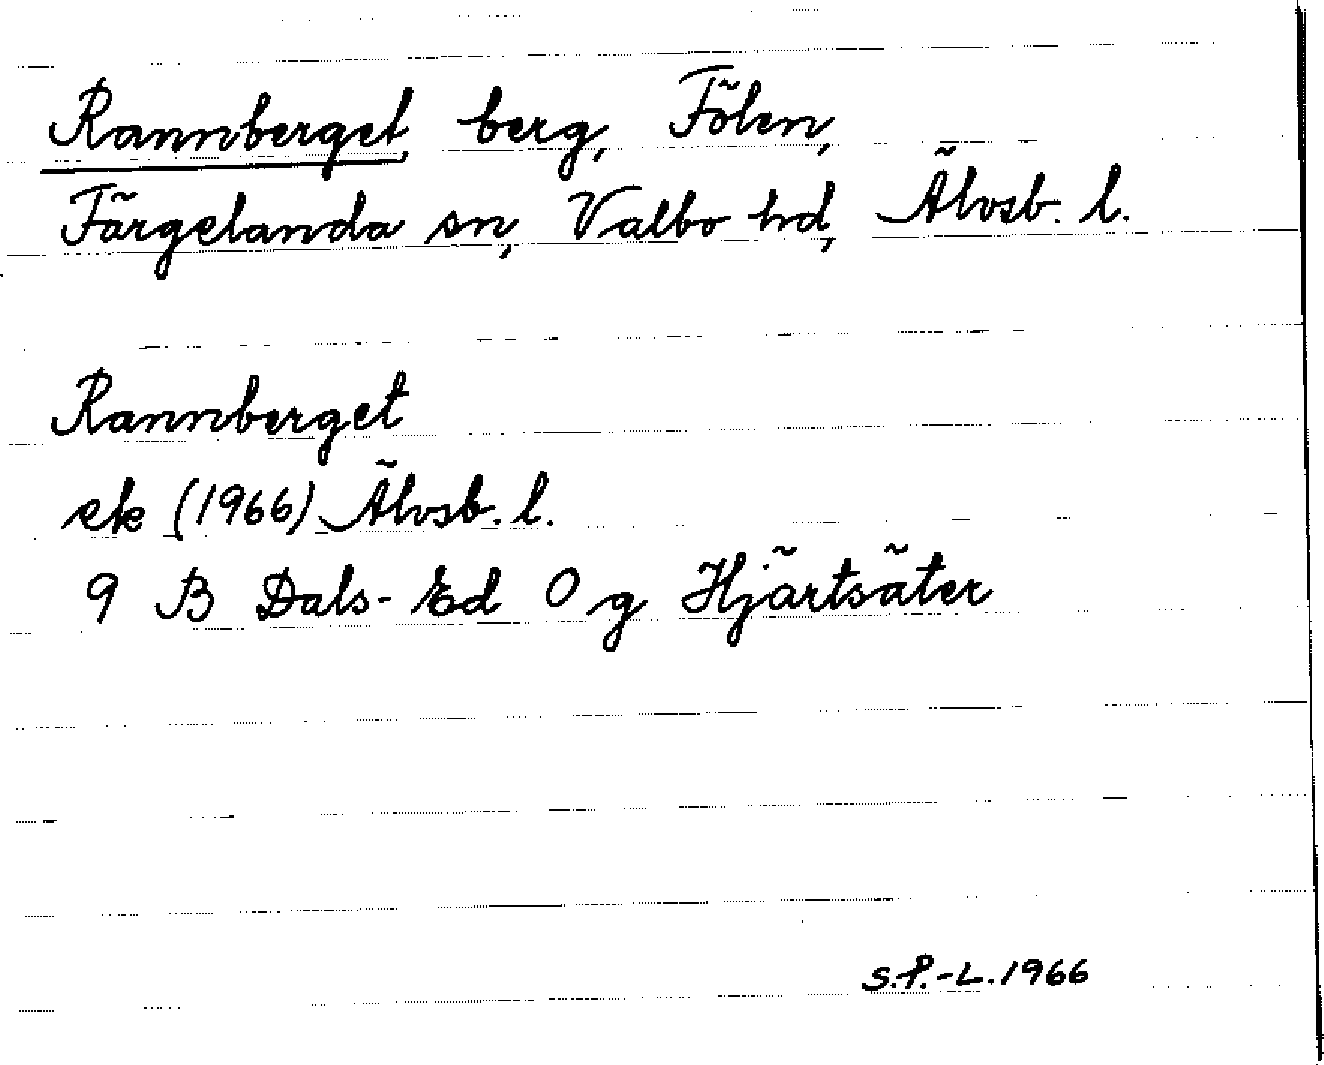 Rannberget, berg, Fölen,
Färgelanda sn, Valbo hd, Älvsb. l.
Rannberget
ek (1966) Älvsb. l.
9 B Dals-Ed O g Hjärtsäter
S.P.-L. 1966